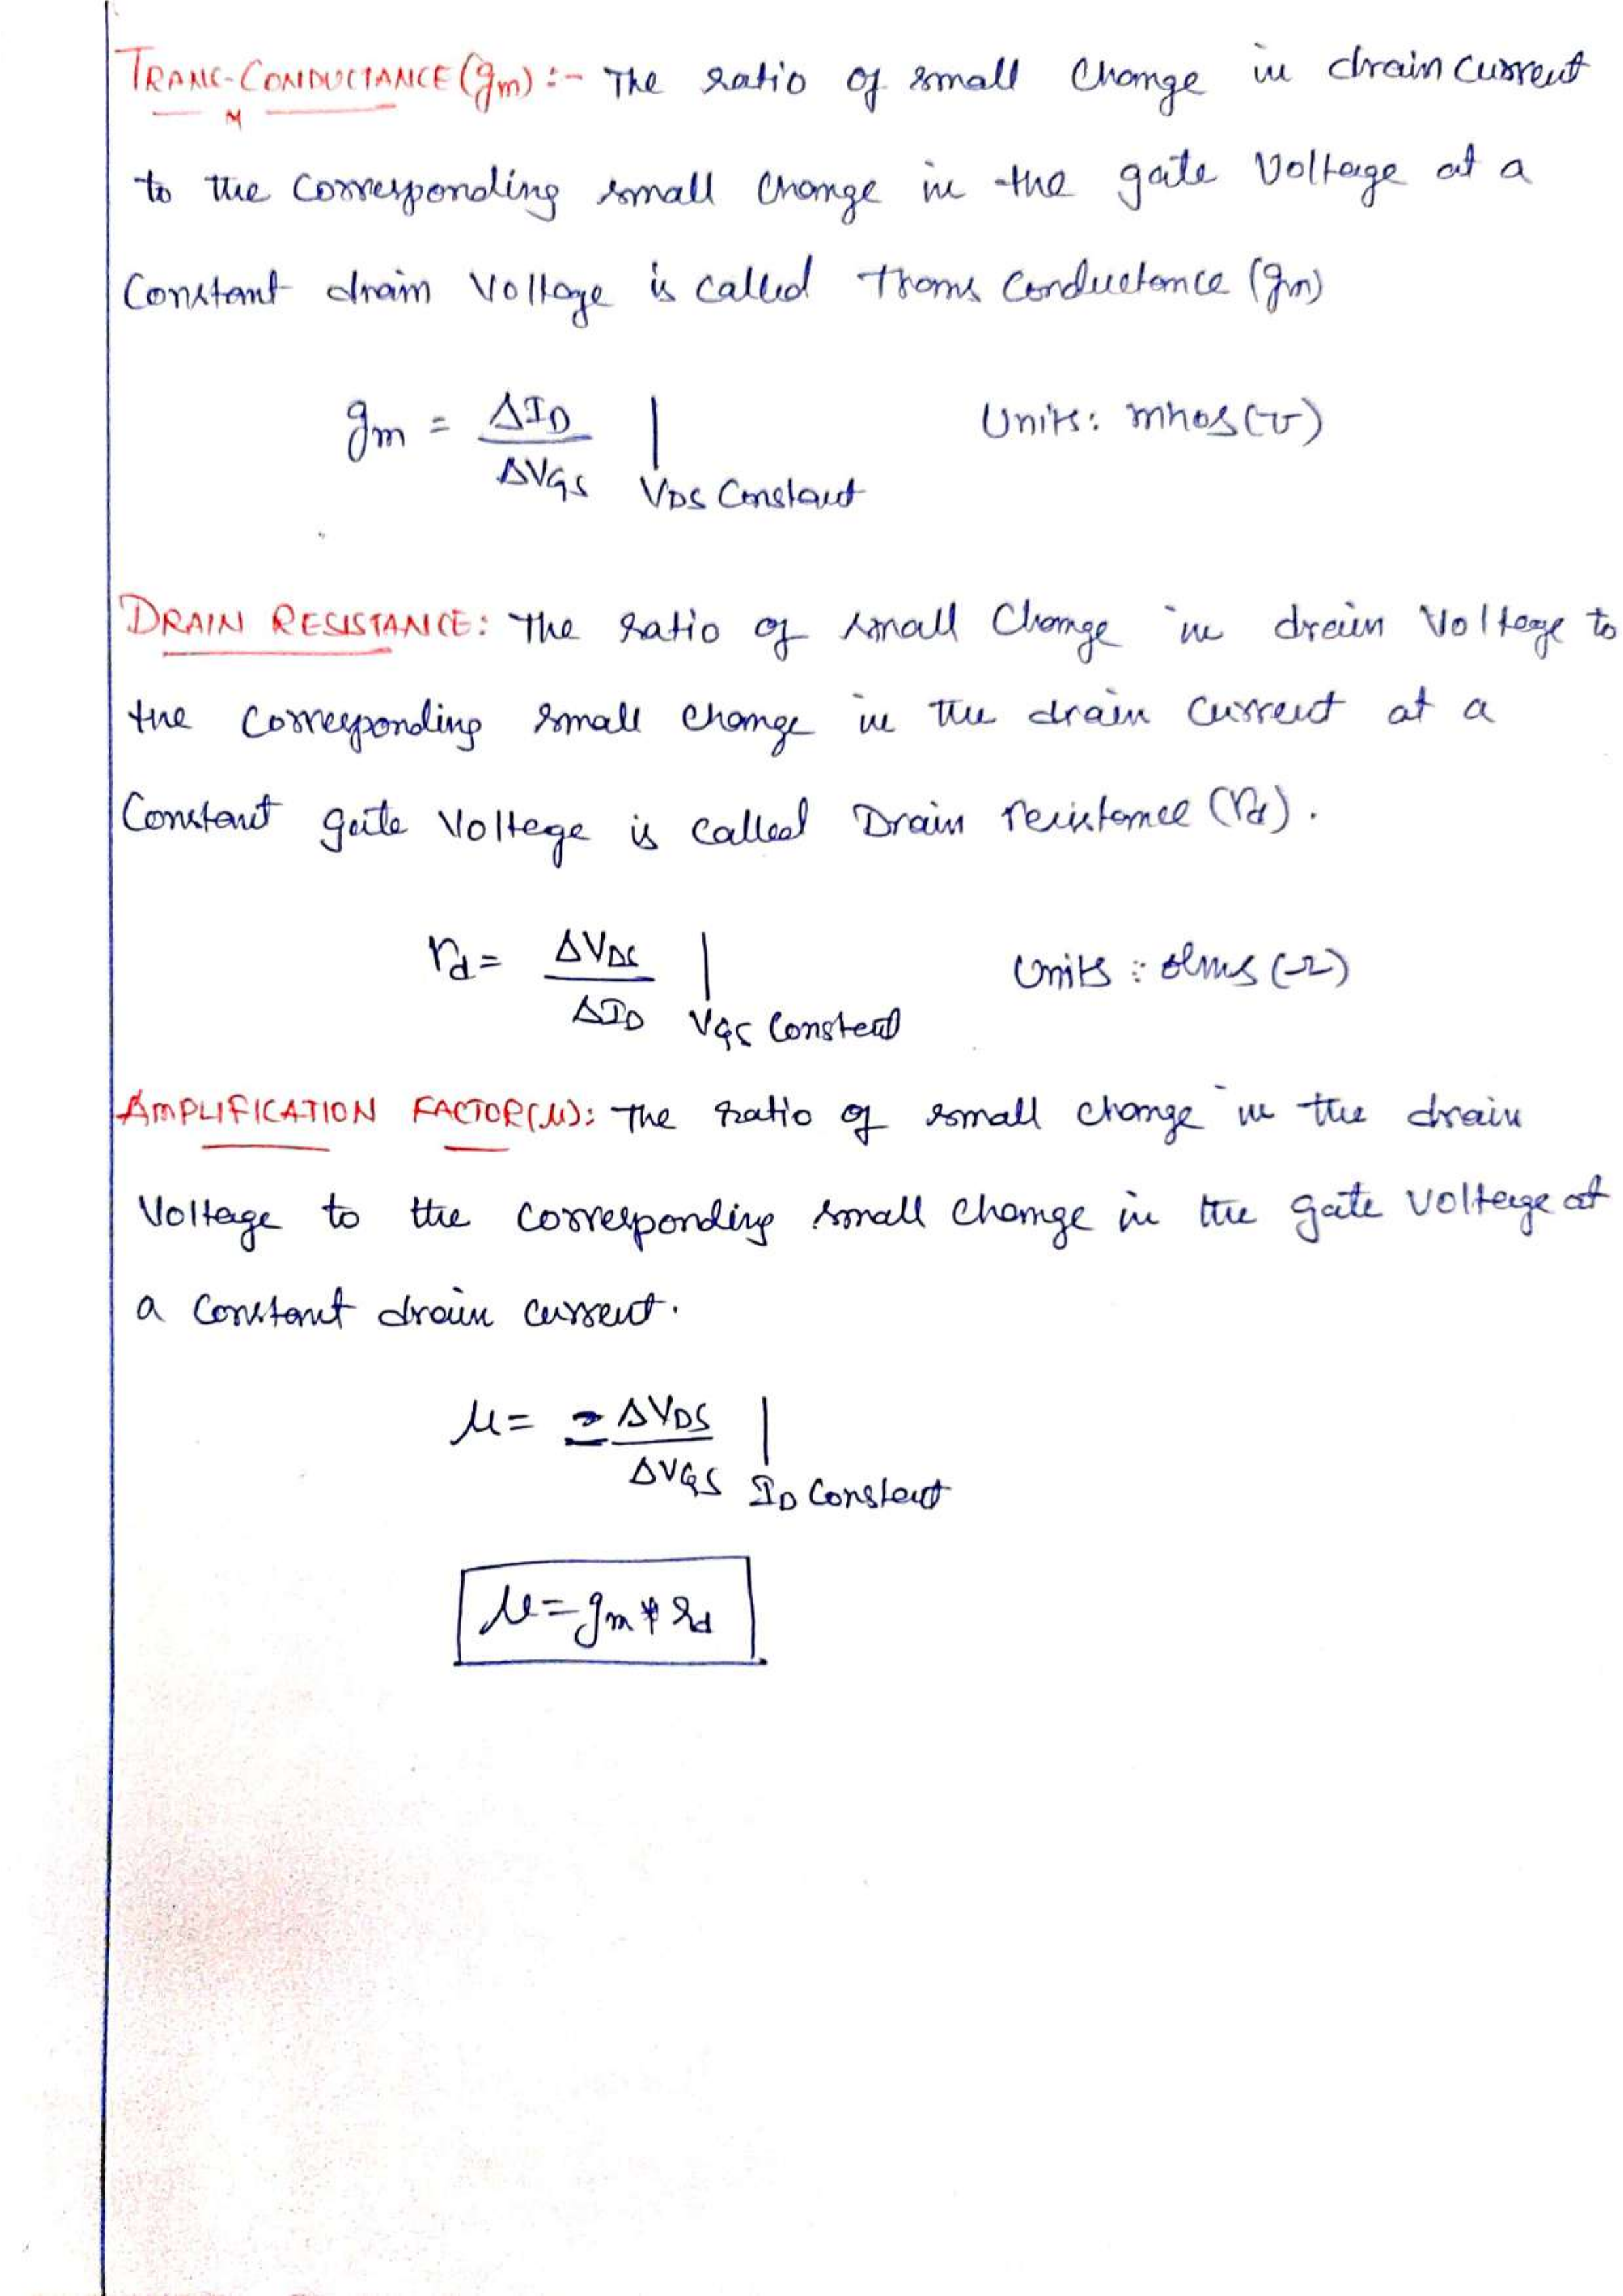 TRANS-CONDUCTANCE (gm) :- The ratio of small change in drain current
to the corresponding small change in the gate voltage at a
constant drain voltage is called Trans conductance (gm)
gm = ΔID / ΔVGS | VDS Constant Units: mhos (℧)
DRAIN RESISTANCE: The ratio of small change in drain voltage to
the corresponding small change in the drain current at a
constant gate voltage is called Drain resistance (rd).
rd = ΔVDS / ΔID | VGS Constant Units : ohms (Ω)
AMPLIFICATION FACTOR (μ): The ratio of small change in the drain
voltage to the corresponding small change in the gate voltage at
a constant drain current.
μ = - ΔVDS / ΔVGS | ID Constant
μ = gm * rd